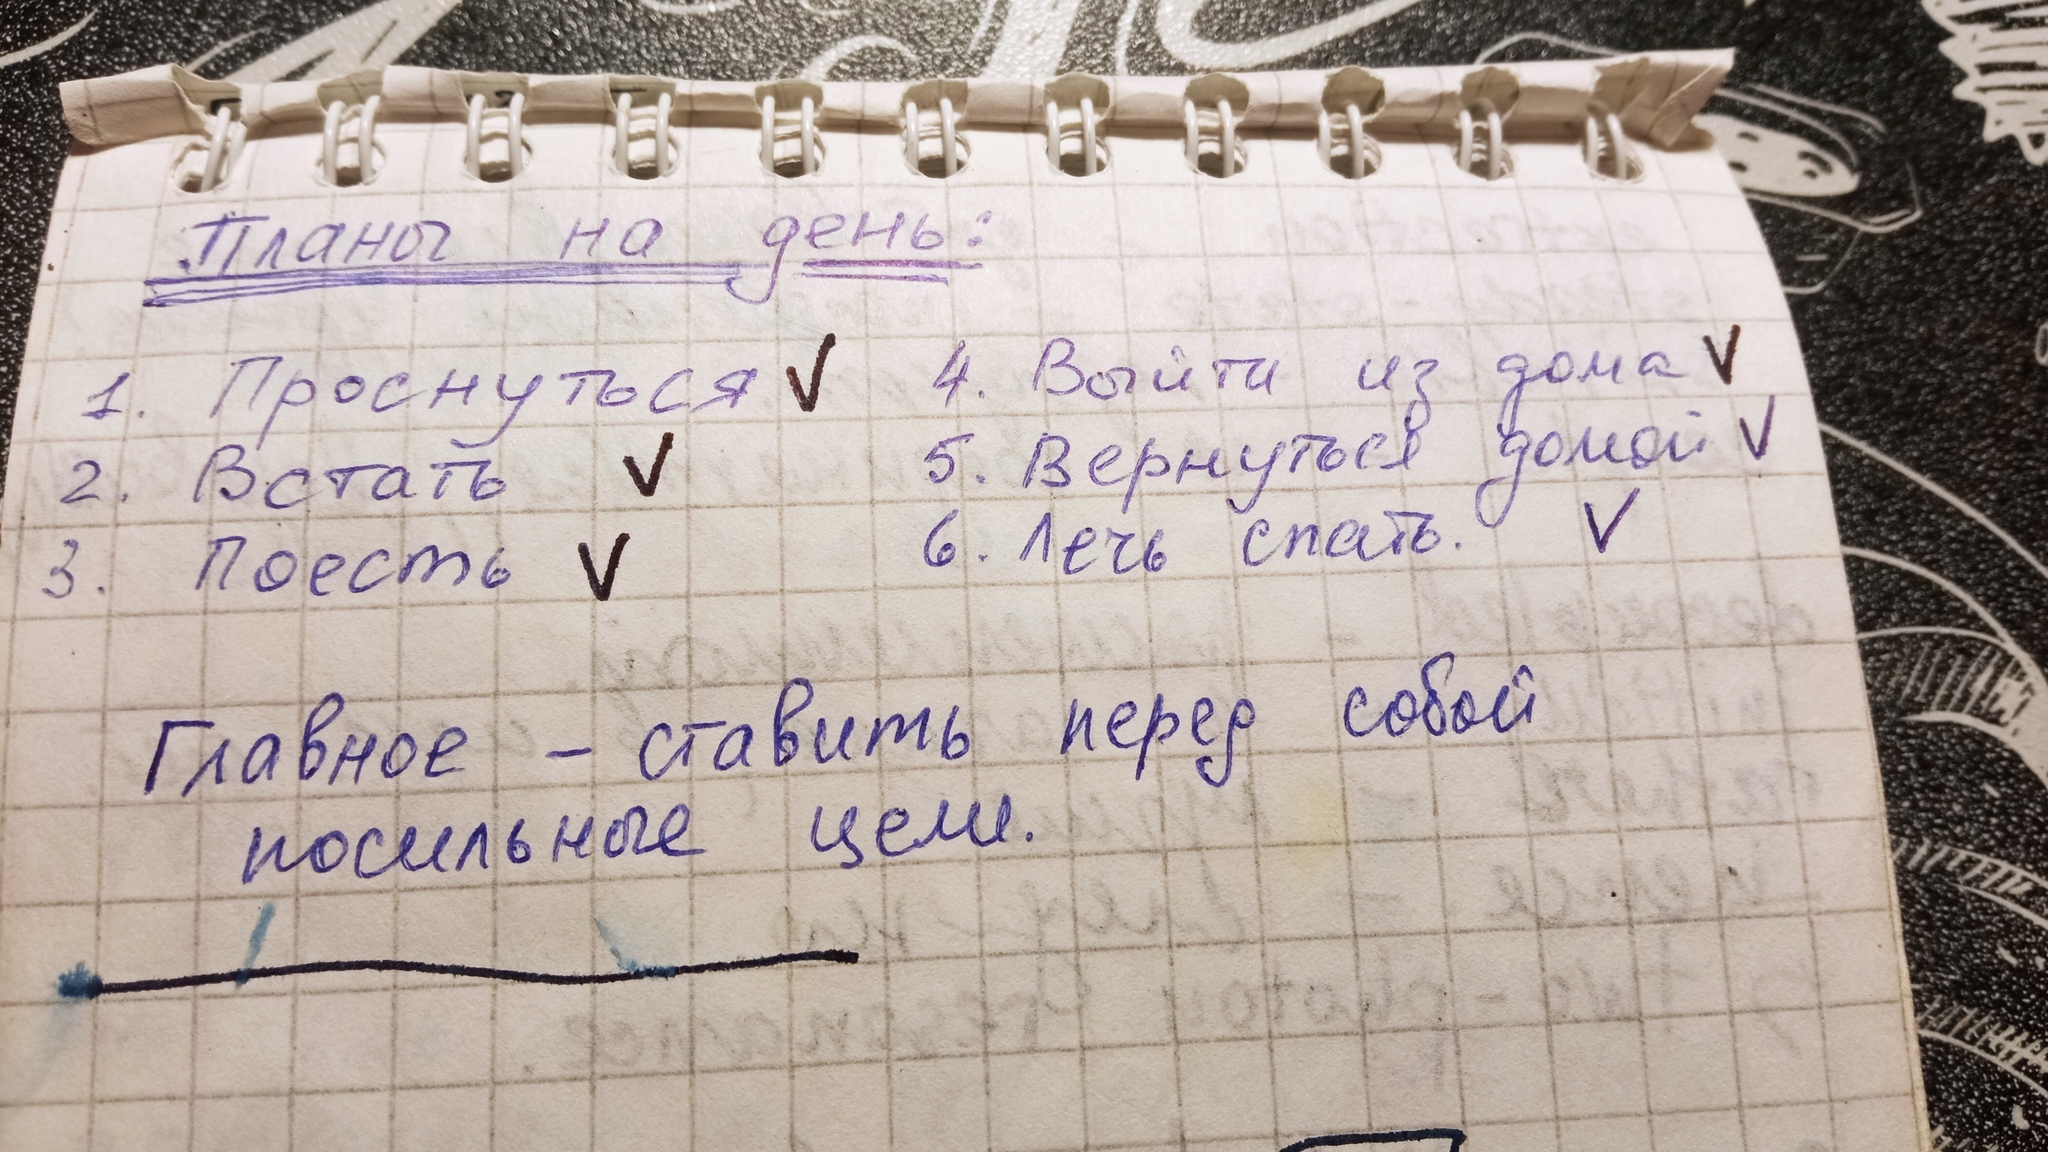 Планы на день:
1. Проснуться ✓
2. Встать ✓
3. Поесть ✓
4. Выйти из дома ✓
5. Вернуться домой ✓
6. Лечь спать. ✓
Главное – ставить перед собой
посильные цели.